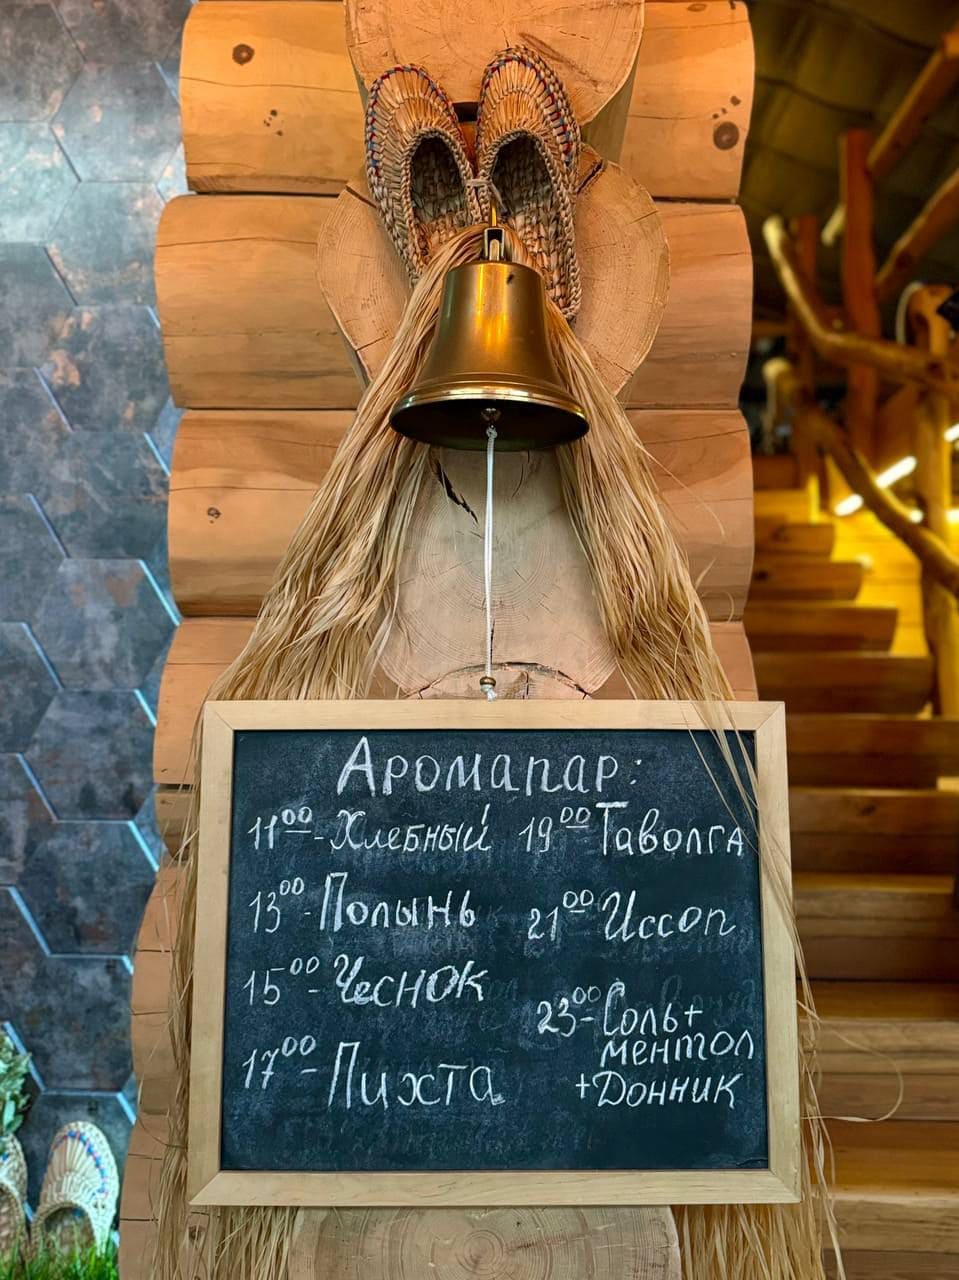 Аромапар:
11⁰⁰-Хлебный
13⁰⁰-Полынь
15⁰⁰-Чеснок
17⁰⁰-Пихта
19⁰⁰-Таволга
21⁰⁰-Иссоп
23⁰⁰-Соль+
ментол
+Донник